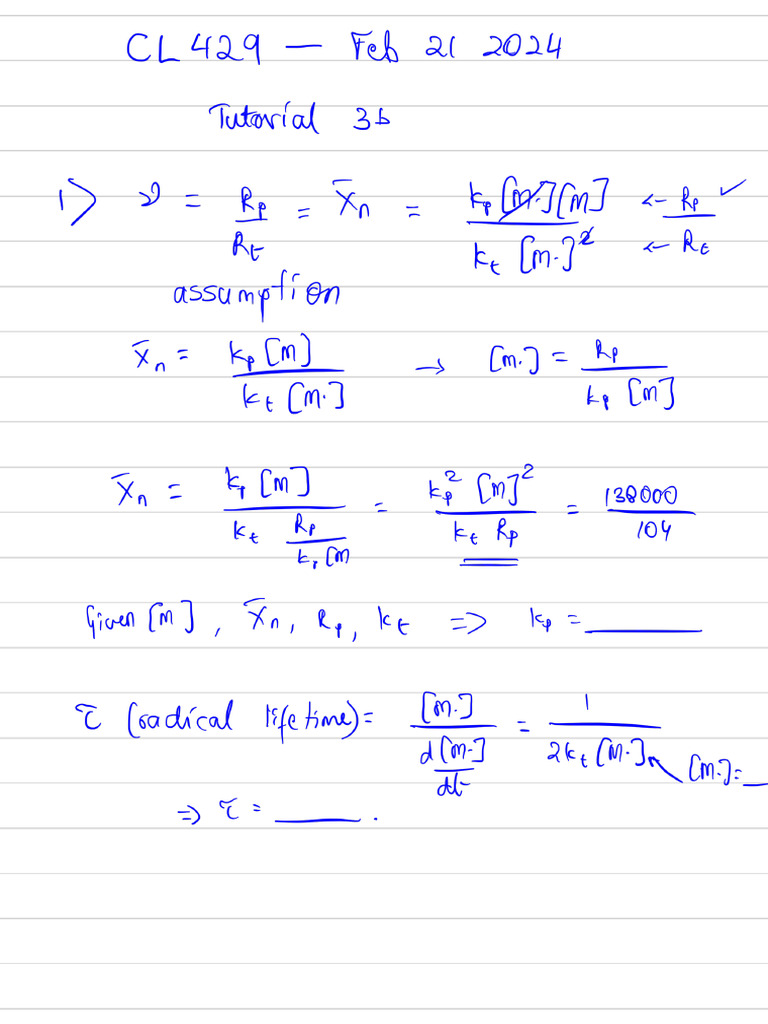 CL 429 — Feb 21 2024
Tutorial 3b
1) ν = Rp / Rt = X̄n = kp [M·][M] / kt [M·]² ← Rp / ← Rt ✓
assumption
X̄n = kp [M] / kt [M·] → [M·] = Rp / kp [M]
X̄n = kp [M] / kt Rp / kp [M = kp² [M]² / kt Rp = 138000 / 104
Given [M], X̄n, Rp, kt => kp = ______
τ (radical lifetime) = [M·] / d[M·] / dt = 1 / 2kt [M·] [M·] = __
=> τ = ______ .